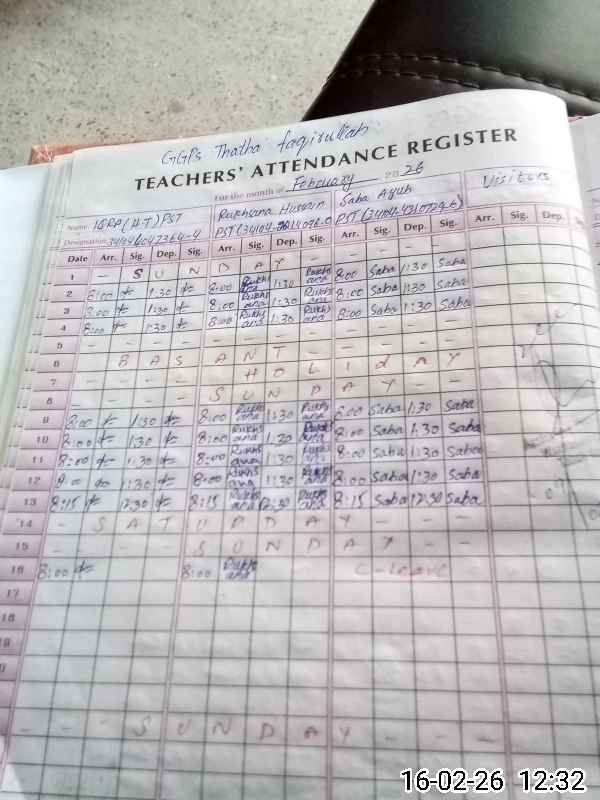 GGPS Thatha faqirullah
TEACHERS' ATTENDANCE REGISTER
For the month of February 2026
Name IQRA (H-T) PST Rukhsana Hussain Saba Ayub Visitors
Designation PST PST
Date Arr. Sig. Dep. Sig. Arr. Sig. Dep. Sig. Arr. Sig. Dep. Sig. Arr. Sig. Dep.
1 - S U N D A Y - -
2 8:00 1:30 8:00 Rukhsana 1:30 Rukhsana 8:00 Saba 1:30 Saba
3 8:00 1:30 8:00 Rukhsana 1:30 Rukhsana 8:00 Saba 1:30 Saba
4 8:00 1:30 8:00 Rukhsana 1:30 Rukhsana 8:00 Saba 1:30 Saba
5 - - - - - - - - - - - -
6 - - B A S A N T - - H O L I d A Y
7 - - - - - -
8 - - - - S U N D A Y - -
9 8:00 1:30 8:00 Rukhsana 1:30 Rukhsana 8:00 Saba 1:30 Saba
10 8:00 1:30 8:00 Rukhsana 1:30 Rukhsana 8:00 Saba 1:30 Saba
11 8:00 1:30 8:00 Rukhsana 1:30 Rukhsana 8:00 Saba 1:30 Saba
12 8:00 1:30 8:00 Rukhsana 1:30 Rukhsana 8:00 Saba 1:30 Saba
13 8:15 12:30 8:15 Rukhsana 12:30 Rukhsana 8:15 Saba 12:30 Saba
14 - S A T U R D A Y - - -
15 - - - - S U N D A Y - -
16 8:00 8:00 Rukhsana C-leave
17
18
19
- - - S U N D A Y - - -
16-02-26 12:32